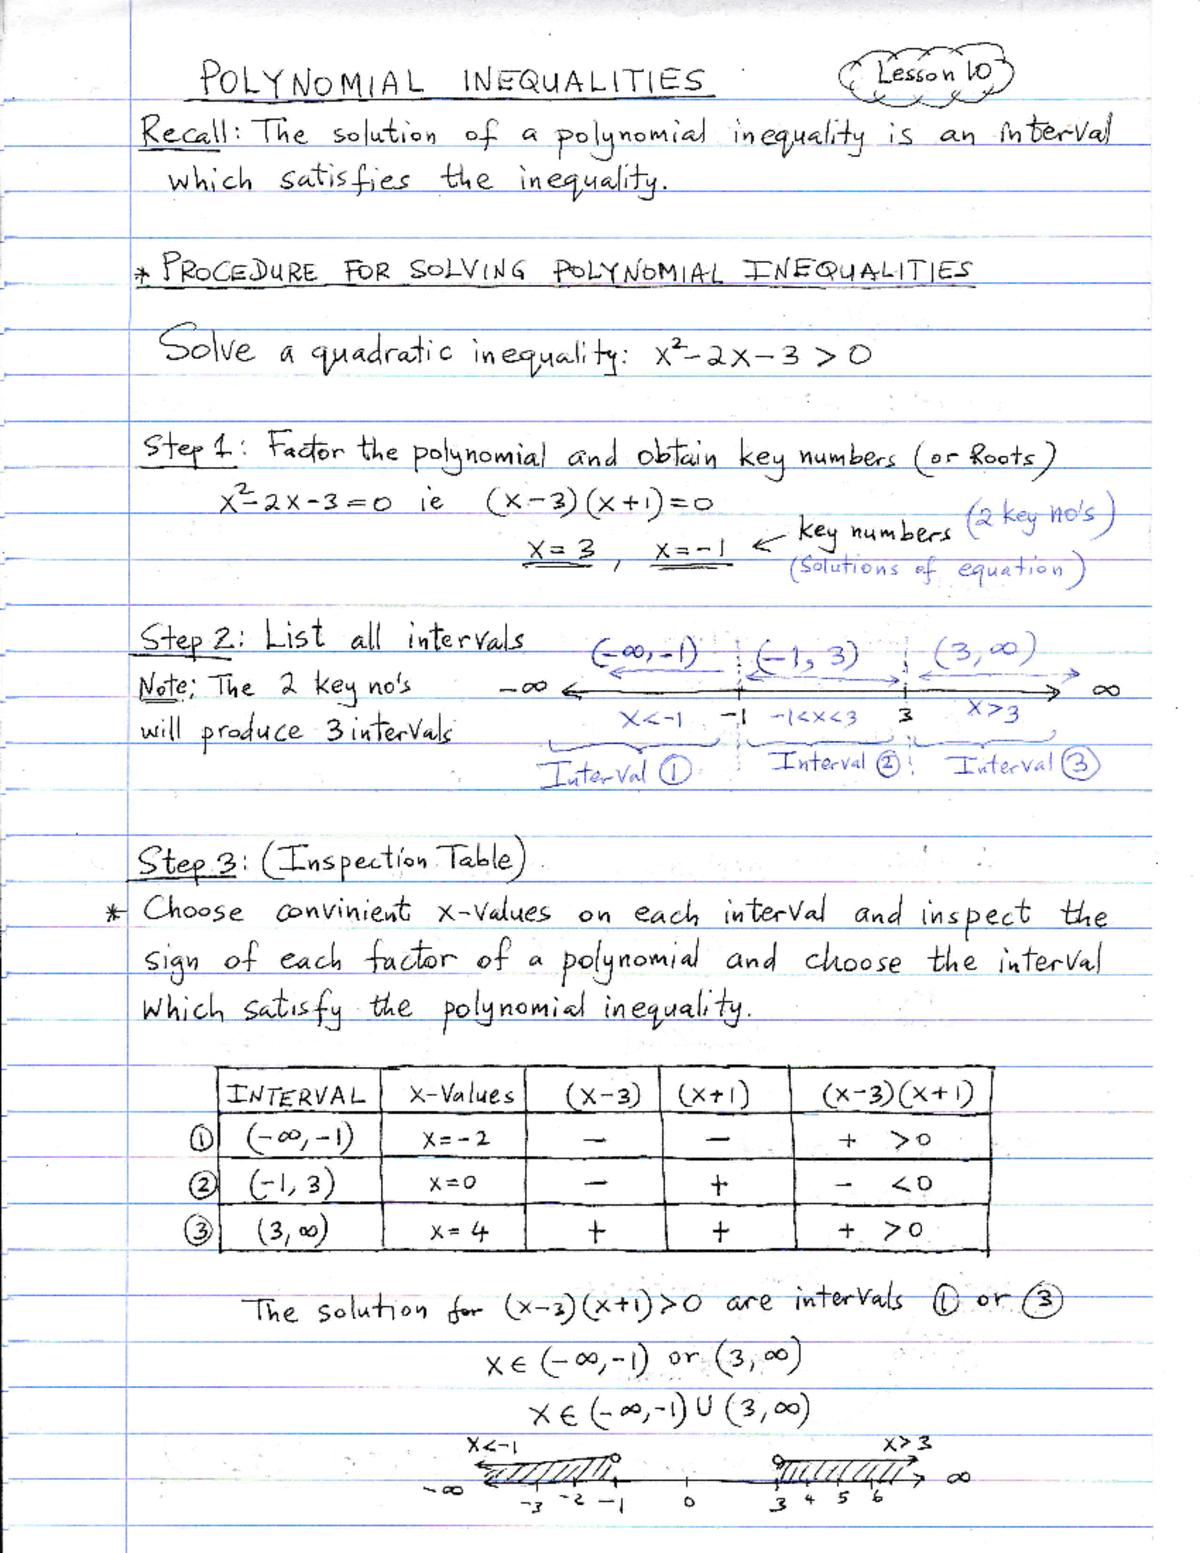 POLYNOMIAL INEQUALITIES
Lesson 10
Recall: The solution of a polynomial inequality is an interval
which satisfies the inequality.
* PROCEDURE FOR SOLVING POLYNOMIAL INEQUALITIES
Solve a quadratic inequality: x²-2x-3>0
Step 1: Factor the polynomial and obtain key numbers (or Roots)
x²-2x-3=0 ie (x-3)(x+1)=0
x=3, x=-1 ← key numbers (2 key no's)
(Solutions of equation)
Step 2: List all intervals
(-∞,-1) (-1, 3) (3, ∞)
Note: The 2 key no's
-∞ ∞
will produce 3 intervals
x<-1 -1 -1<x<3 3 x>3
Interval ① Interval ② Interval ③
Step 3: (Inspection Table)
* Choose convinient x-values on each interval and inspect the
sign of each factor of a polynomial and choose the interval
which satisfy the polynomial inequality.
INTERVAL x-Values (x-3) (x+1) (x-3)(x+1)
① (-∞,-1) x=-2 - - + >0
② (-1, 3) x=0 - + - <0
③ (3, ∞) x=4 + + + >0
The solution for (x-3)(x+1)>0 are intervals ① or ③
x∈(-∞,-1) or (3, ∞)
x∈(-∞,-1)∪(3,∞)
x<-1 x>3
-∞ ∞
-3 -2 -1 0 3 4 5 6